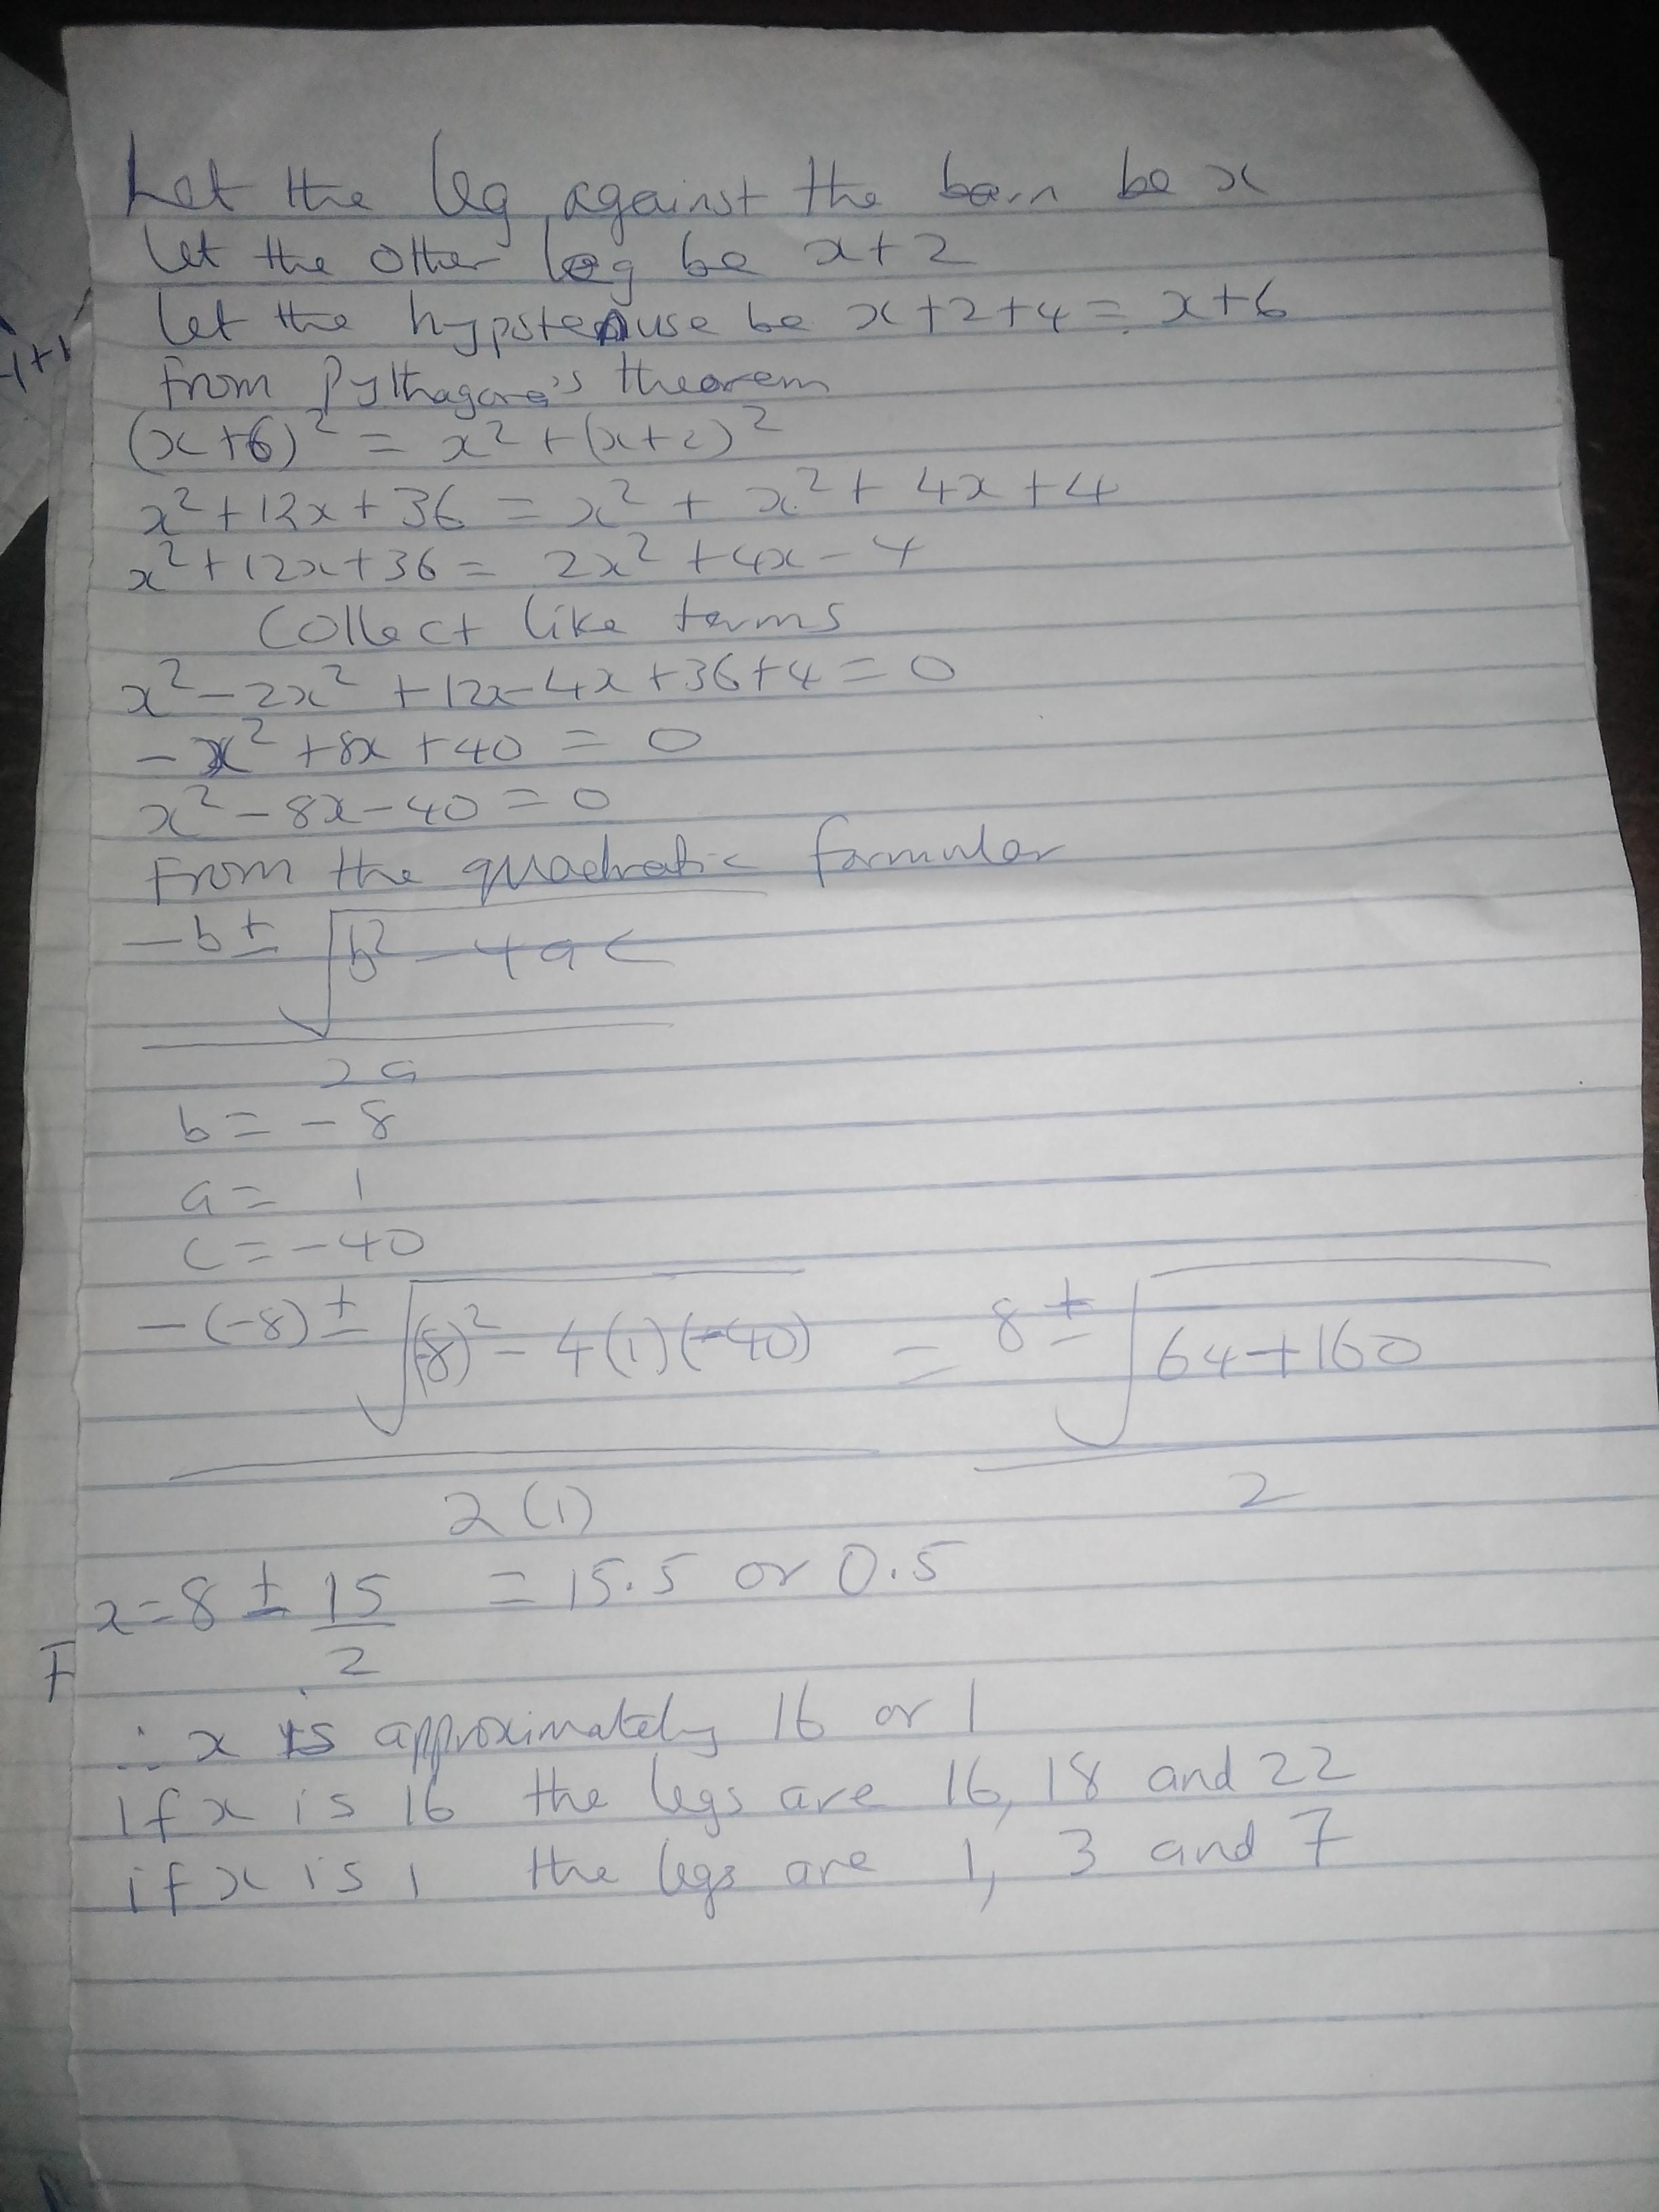 Let the leg against the barn be x
let the other leg be x+2
let the hypotenuse be x+2+4 = x+6
from Pythagora's theorem
(x+6)² = x² + (x+2)²
x² + 12x + 36 = x² + x² + 4x + 4
x² + 12x + 36 = 2x² + 4x - 4
Collect like terms
x² - 2x² + 12x - 4x + 36 + 4 = 0
- x² + 8x + 40 = 0
x² - 8x - 40 = 0
From the quadratic formular
-b ± √b² - 4ac
2a
b = - 8
a = 1
c = -40
-(-8) ± √(-8)² - 4(1)(-40) = 8 ± √64+160
2(1) 2
x = 8 ± 15 = 15.5 or 0.5
2
F
∴ x is approximately 16 or 1
If x is 16 the legs are 16, 18 and 22
if x is 1 the legs are 1, 3 and 7